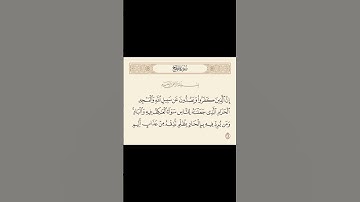 سورة الحج
بسم الله الرحمن الرحيم
إن الذين كفروا ويصدون عن سبيل الله والمسجد
الحرام الذي جعلناه للناس سواء العاكف فيه والباد
ومن يرد فيه بإلحاد بظلم نذقه من عذاب أليم